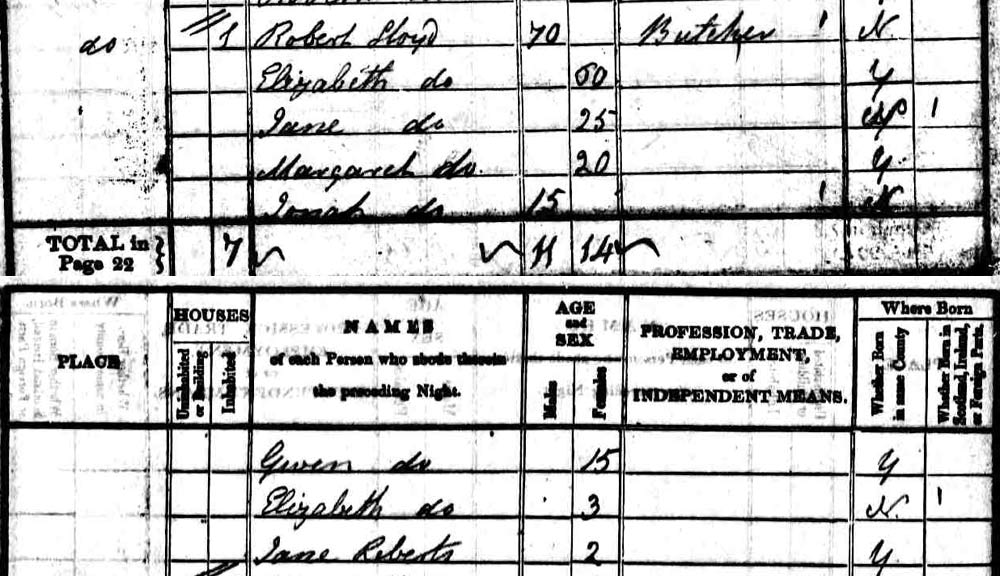 do 1 Robert Lloyd 70 Butcher N
Elizabeth do 60 Y
Jane do 25 N
Margaret do 20 Y
Jonah do 15 N
TOTAL in Page 22 } 7 11 14
PLACE
HOUSES
Uninhabited or Building
Inhabited
NAMES
of each Person who abode therein
the preceding Night.
AGE
and
SEX
Males
Females
PROFESSION, TRADE,
EMPLOYMENT,
or of
INDEPENDENT MEANS.
Where Born
Whether Born in same County
Whether Born in Scotland, Ireland, or Foreign Parts.
Gwen do 15 Y
Elizabeth do 3 N.
Jane Roberts 2 Y.